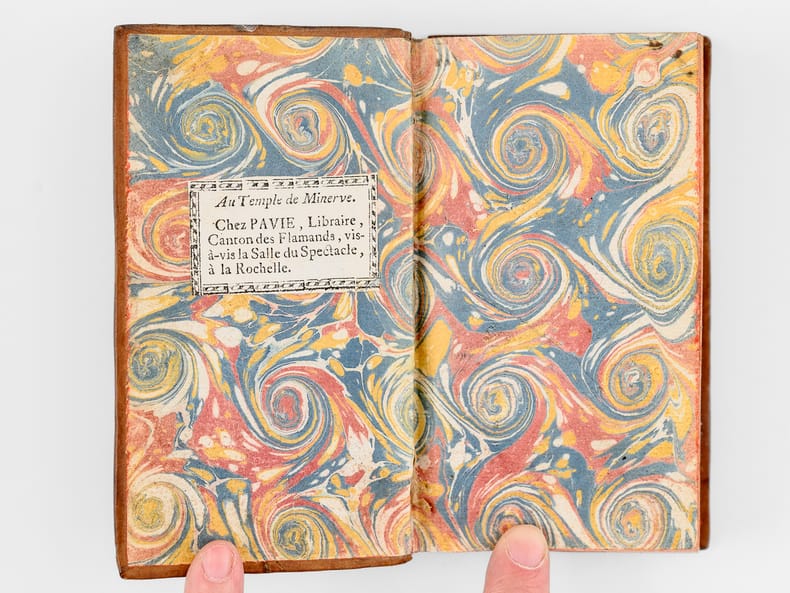 Au Temple de Minerve.
Chez PAVIE, Libraire,
Canton des Flamands, vis-
à-vis la Salle du Spectacle,
à la Rochelle.